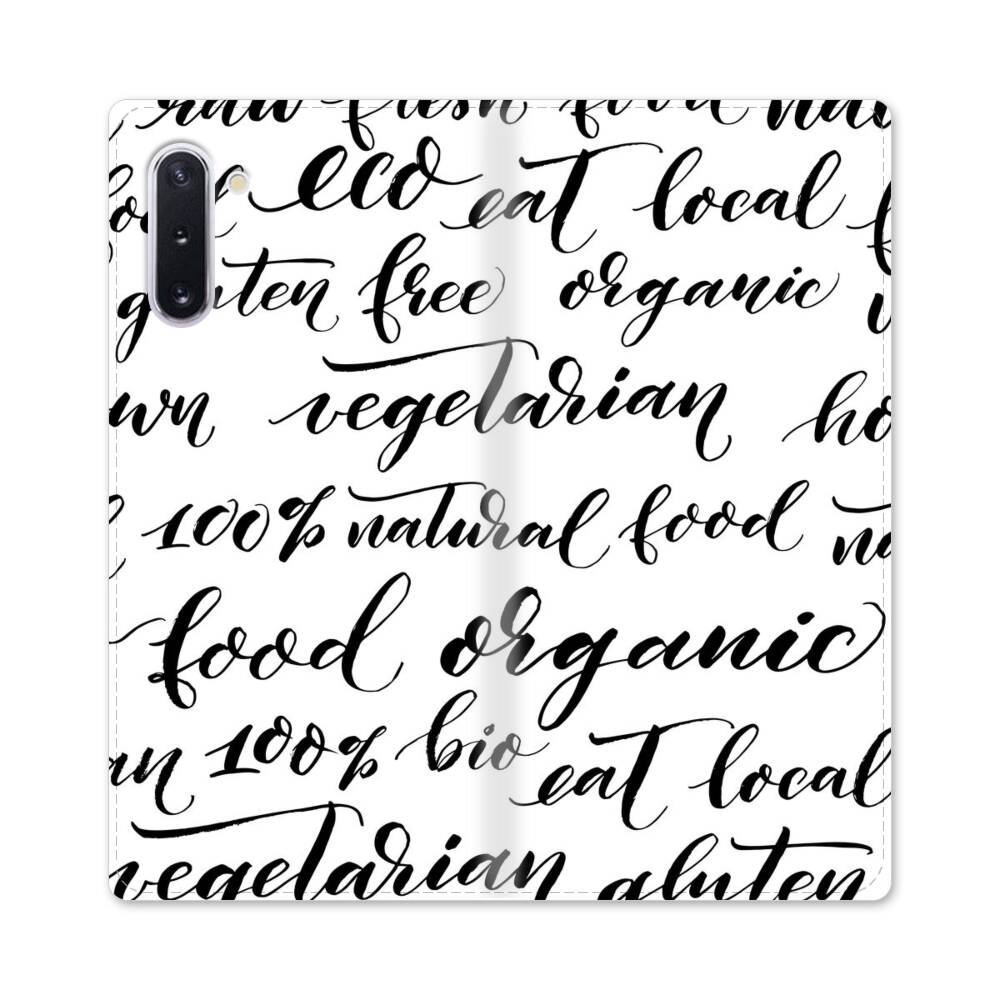 raw fresh food
eco eat local
gluten free organic
vegetarian
100% natural food
food organic
100% bio eat local
vegetarian gluten